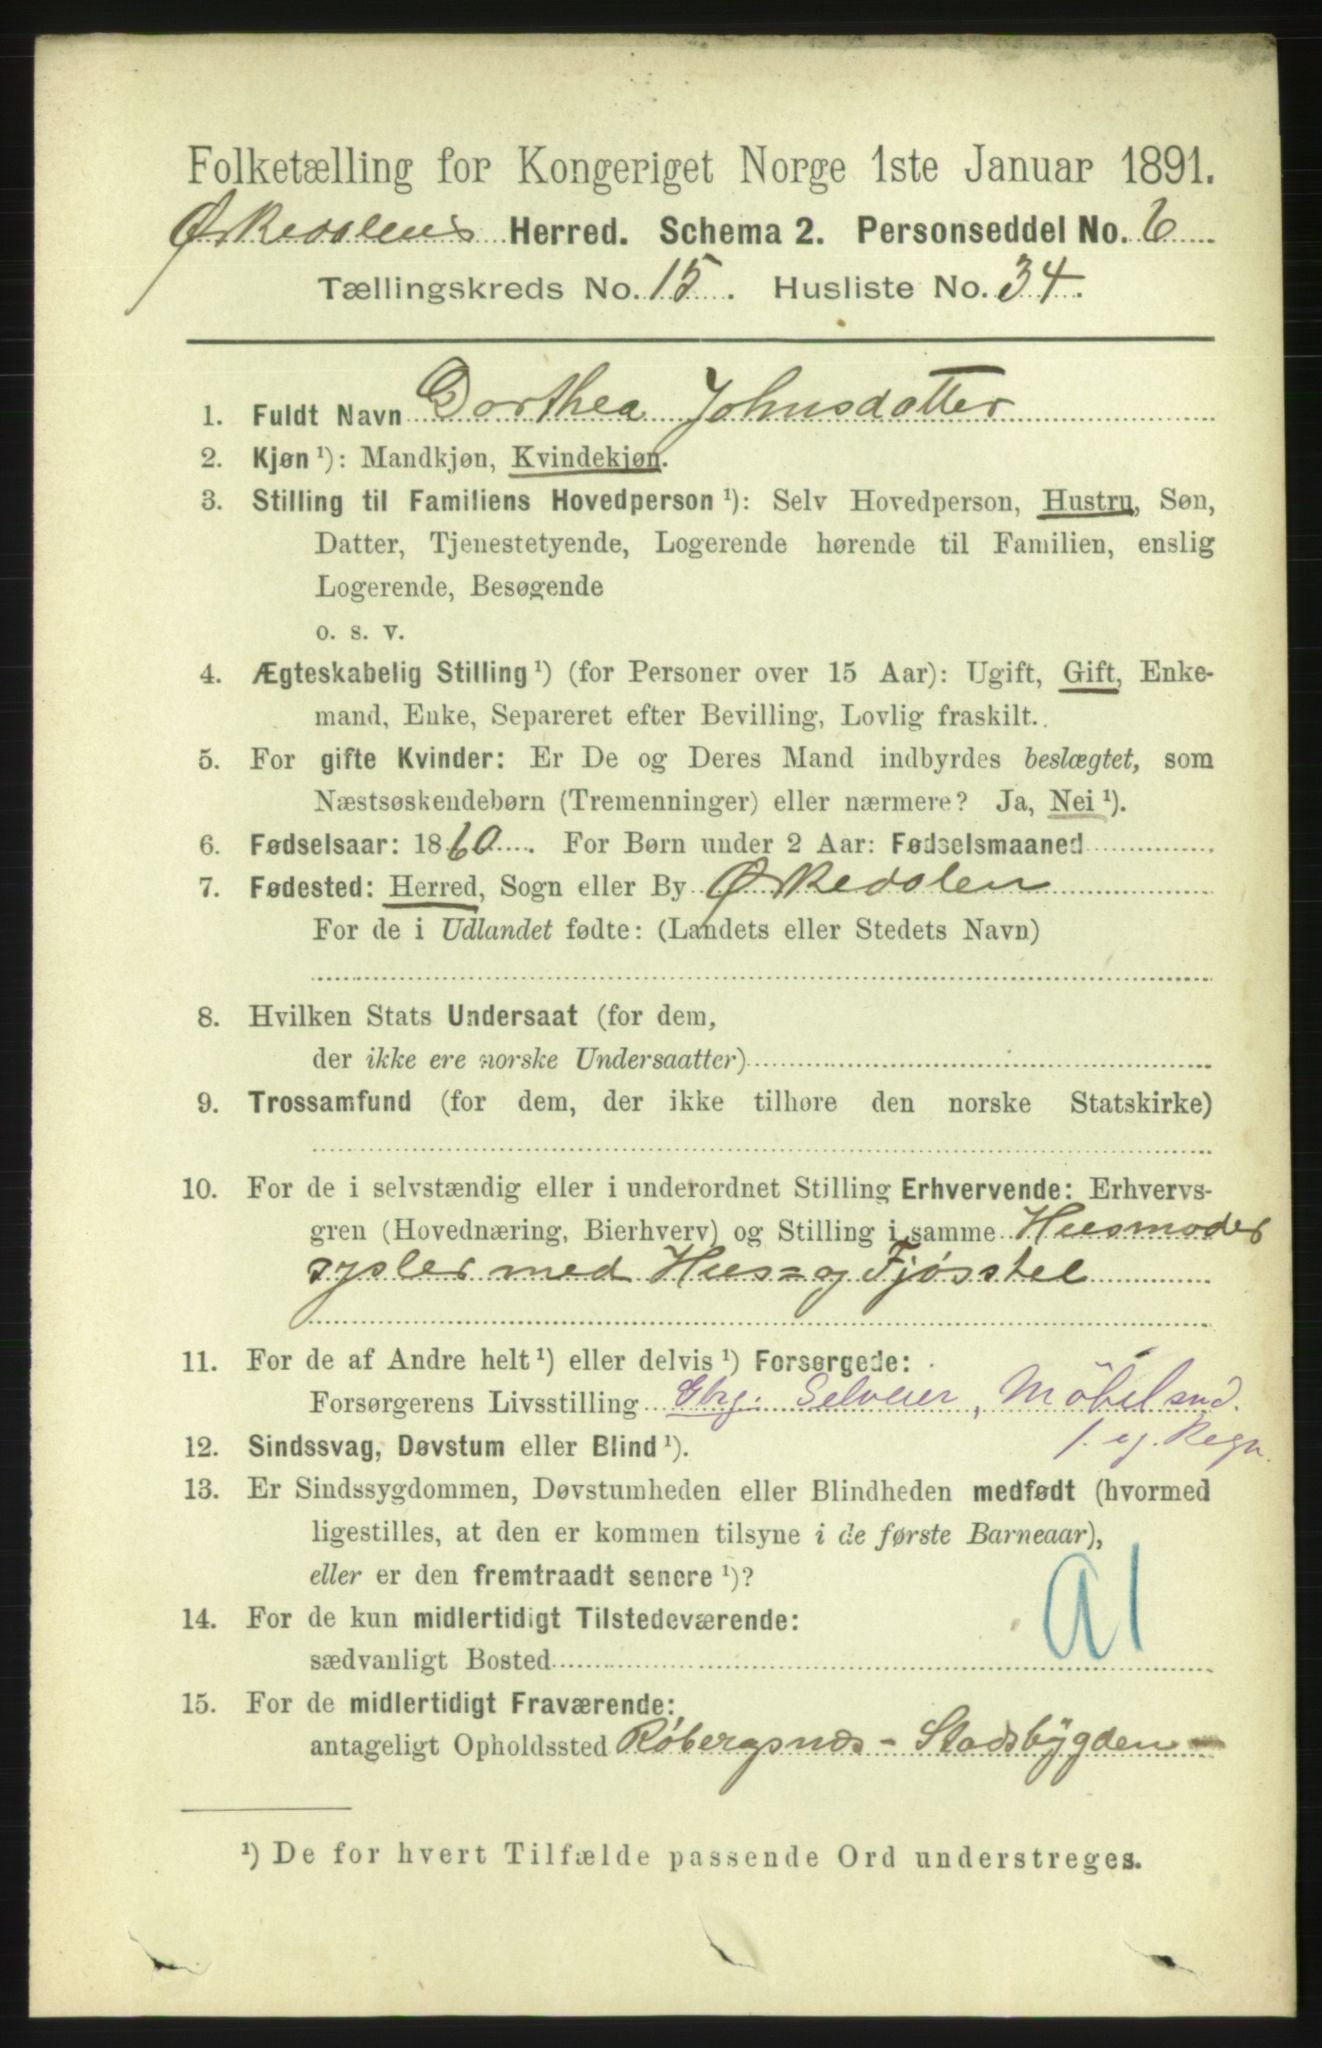 Folketælling for Kongeriget Norge 1ste Januar 1891.
Ørkedalens Herred. Schema 2. Personseddel No. 6
Tællingskreds No. 15. Husliste No. 34.
1. Fuldt Navn Dorthea Johnsdatter
2. Kjøn ¹): Mandkjøn, Kvindekjøn.
3. Stilling til Familiens Hovedperson ¹): Selv Hovedperson, Hustru, Søn,
Datter, Tjenestetyende, Logerende hørende til Familien, enslig
Logerende, Besøgende
o. s. v.
4. Ægteskabelig Stilling ¹) (for Personer over 15 Aar): Ugift, Gift, Enke-
mand, Enke, Separeret efter Bevilling, Lovlig fraskilt.
5. For gifte Kvinder: Er De og Deres Mand indbyrdes beslægtet, som
Næstsøskendebørn (Tremenninger) eller nærmere? Ja, Nei ¹).
6. Fødselsaar: 1860. For Børn under 2 Aar: Fødselsmaaned
7. Fødested: Herred, Sogn eller By Ørkedalen
For de i Udlandet fødte: (Landets eller Stedets Navn)
8. Hvilken Stats Undersaat (for dem,
der ikke ere norske Undersaatter)
9. Trossamfund (for dem, der ikke tilhøre den norske Statskirke)
10. For de i selvstændig eller i underordnet Stilling Erhvervende: Erhvervs-
gren (Hovednæring, Bierhverv) og Stilling i samme Husmoder
sysler med Hus= og Fjøsstel
11. For de af Andre helt ¹) eller delvis ¹) Forsørgede:
Forsørgerens Livsstilling Gbrg. Selveier, Möbelsnd.
f. eg. Regn.
12. Sindssvag, Døvstum eller Blind ¹).
13. Er Sindssygdommen, Døvstumheden eller Blindheden medfødt (hvormed
ligestilles, at den er kommen tilsyne i de første Barneaar),
eller er den fremtraadt senere ¹)?
a1
14. For de kun midlertidigt Tilstedeværende:
sædvanligt Bosted
15. For de midlertidigt Fraværende:
antageligt Opholdssted Røbergsnæs - Stadsbygden
¹) De for hvert Tilfælde passende Ord understreges.